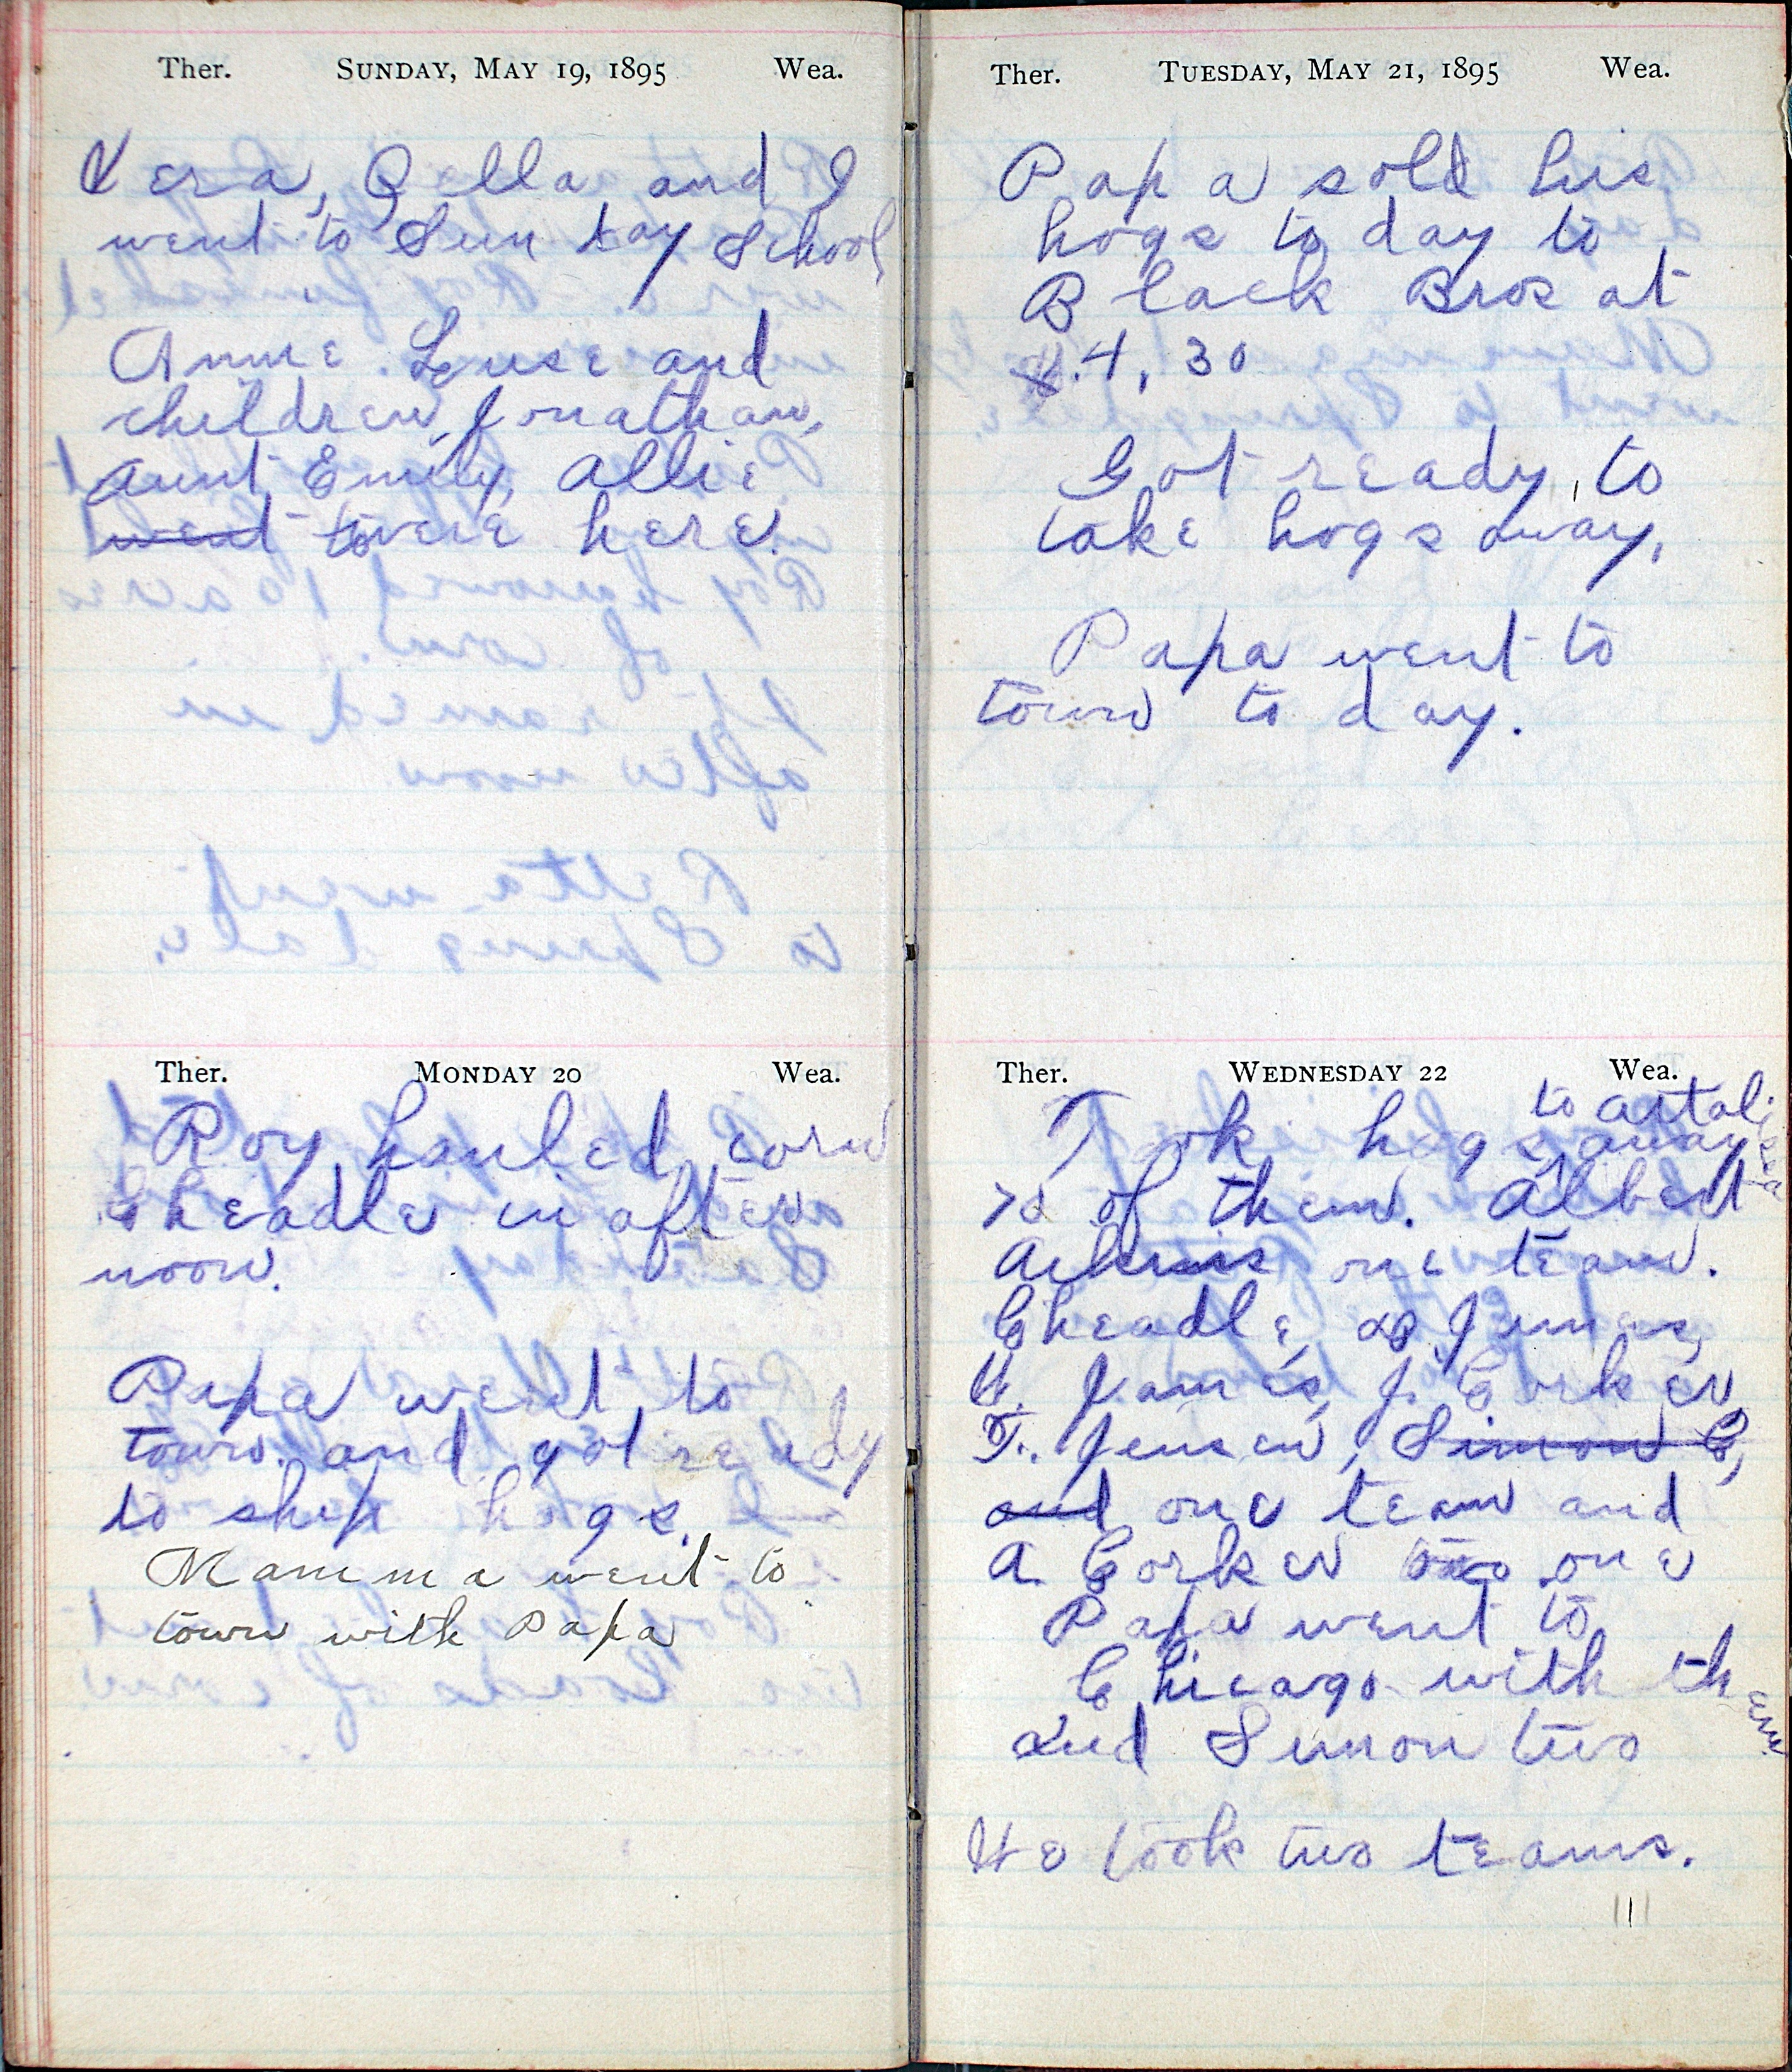 Ther. SUNDAY, MAY 19, 1895 Wea.
Vera, Zella and I
went to Sun day School
Annie Luse and
children, Jonathan,
Aunt Emily, Allie
went to were here.
Ther. MONDAY 20 Wea.
Roy hauled corn
Cheadle in after
noon.
Papa went to
town and got ready
to ship hogs.
Mamma went to
town with Papa
Ther. TUESDAY, MAY 21, 1895 Wea.
Papa sold his
hogs to day to
Black Bros at
4,30
Got ready to
take hogs away,
Papa went to
town to day.
Ther. WEDNESDAY 22 Wea.
to
Took hogs away
of them. Albert
one team.
Cheadle,
James, J. Corker,
T. Jensen, Simon C,
and one team and
A Corker one
Papa went to
Chicago with them
and Simon two
We took two teams.